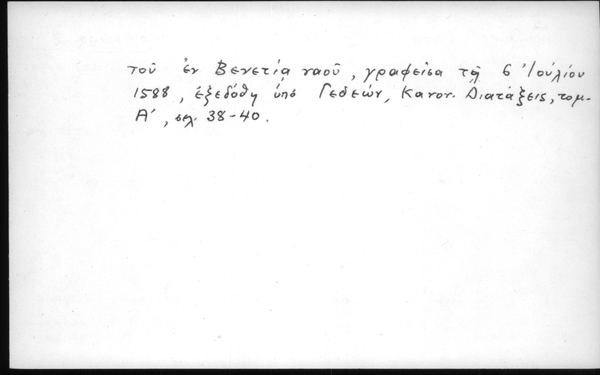 τοῦ ἐν Βενετίᾳ ναοῦ, γραφεῖσα τῇ 6 Ἰουλίου
1588, ἐξεδόθη ὑπὸ Γεδεών, Κανον. Διατάξεις, τομ.
Α΄, σελ. 38-40.